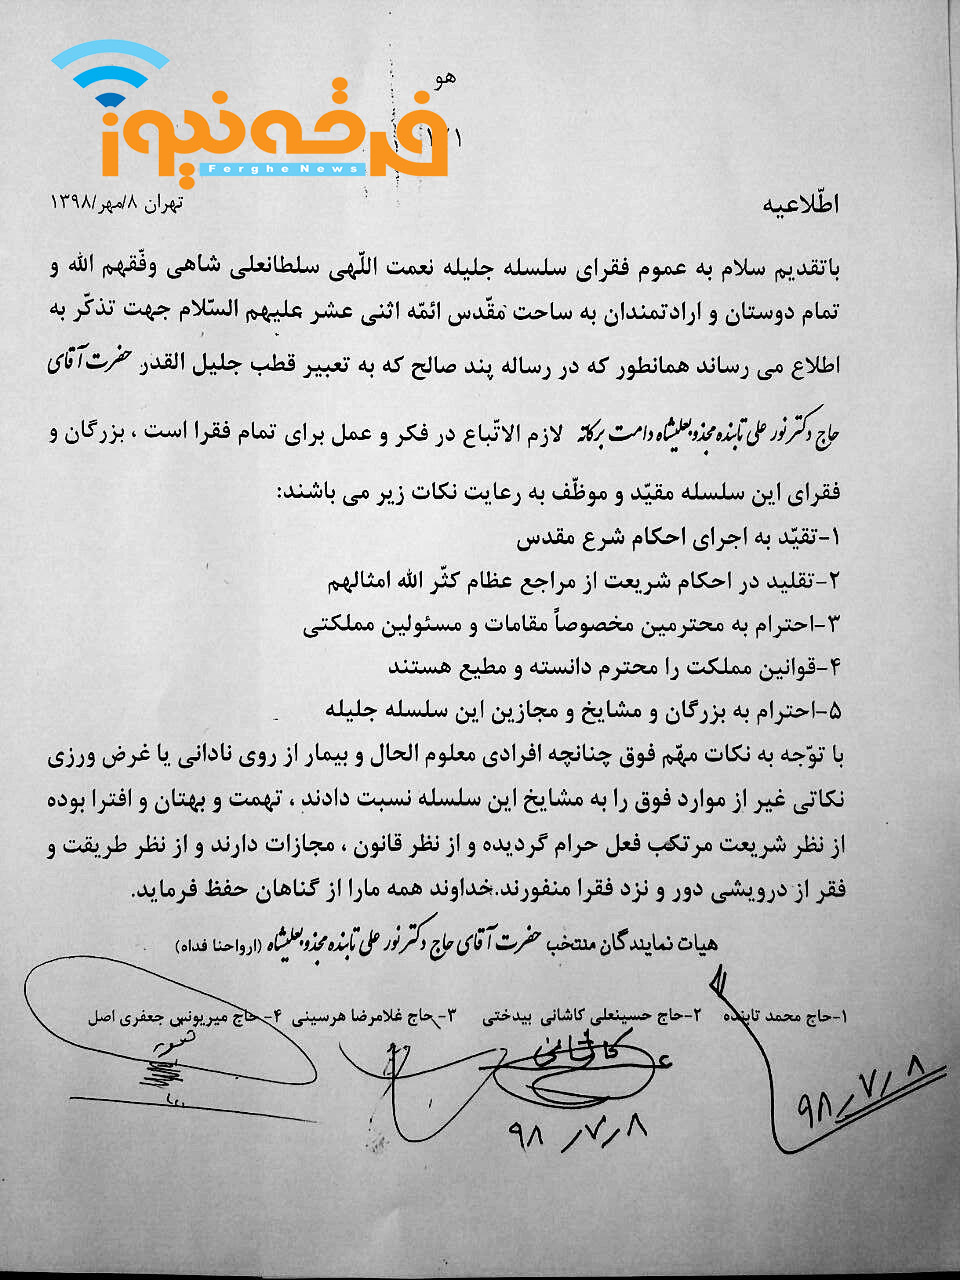 هو
۱۲۱
فرقه نیوز
Ferghe News
اطّلاعیه
تهران ۸/مهر/۱۳۹۸
باتقدیم سلام به عموم فقرای سلسله جلیله نعمت اللّهی سلطانعلی شاهی وفّقهم الله و
تمام دوستان و ارادتمندان به ساحت مقّدس ائمّه اثنی عشر علیهم السّلام جهت تذکّر به
اطلاع می رساند همانطور که در رساله پند صالح که به تعبیر قطب جلیل القدر حضرت آقای
حاج دکتر نور علی تابنده مجذوبعلیشاه دامت برکاته لازم الاتّباع در فکر و عمل برای تمام فقرا است ، بزرگان و
فقرای این سلسله مقیّد و موظّف به رعایت نکات زیر می باشند:
۱-تقیّد به اجرای احکام شرع مقدس
۲-تقلید در احکام شریعت از مراجع عظام کثّر الله امثالهم
۳-احترام به محترمین مخصوصاً مقامات و مسئولین مملکتی
۴-قوانین مملکت را محترم دانسته و مطیع هستند
۵-احترام به بزرگان و مشایخ و مجازین این سلسله جلیله
با توّجه به نکات مهّم فوق چنانچه افرادی معلوم الحال و بیمار از روی نادانی یا غرض ورزی
نکاتی غیر از موارد فوق را به مشایخ این سلسله نسبت دادند ، تهمت و بهتان و افترا بوده
از نظر شریعت مرتکب فعل حرام گردیده و از نظر قانون ، مجازات دارند و از نظر طریقت و
فقر از درویشی دور و نزد فقرا منفورند.خداوند همه مارا از گناهان حفظ فرماید.
هیات نمایندگان منتخب حضرت آقای حاج دکتر نور علی تابنده مجذوبعلیشاه (ارواحنا فداه)
۱-حاج محمد تابنده ۲-حاج حسینعلی کاشانی بیدختی ۳-حاج غلامرضا هرسینی ۴- حاج میریونس جعفری اصل
کاشانی
۹۸/۷/۸
۹۸/۷/۸